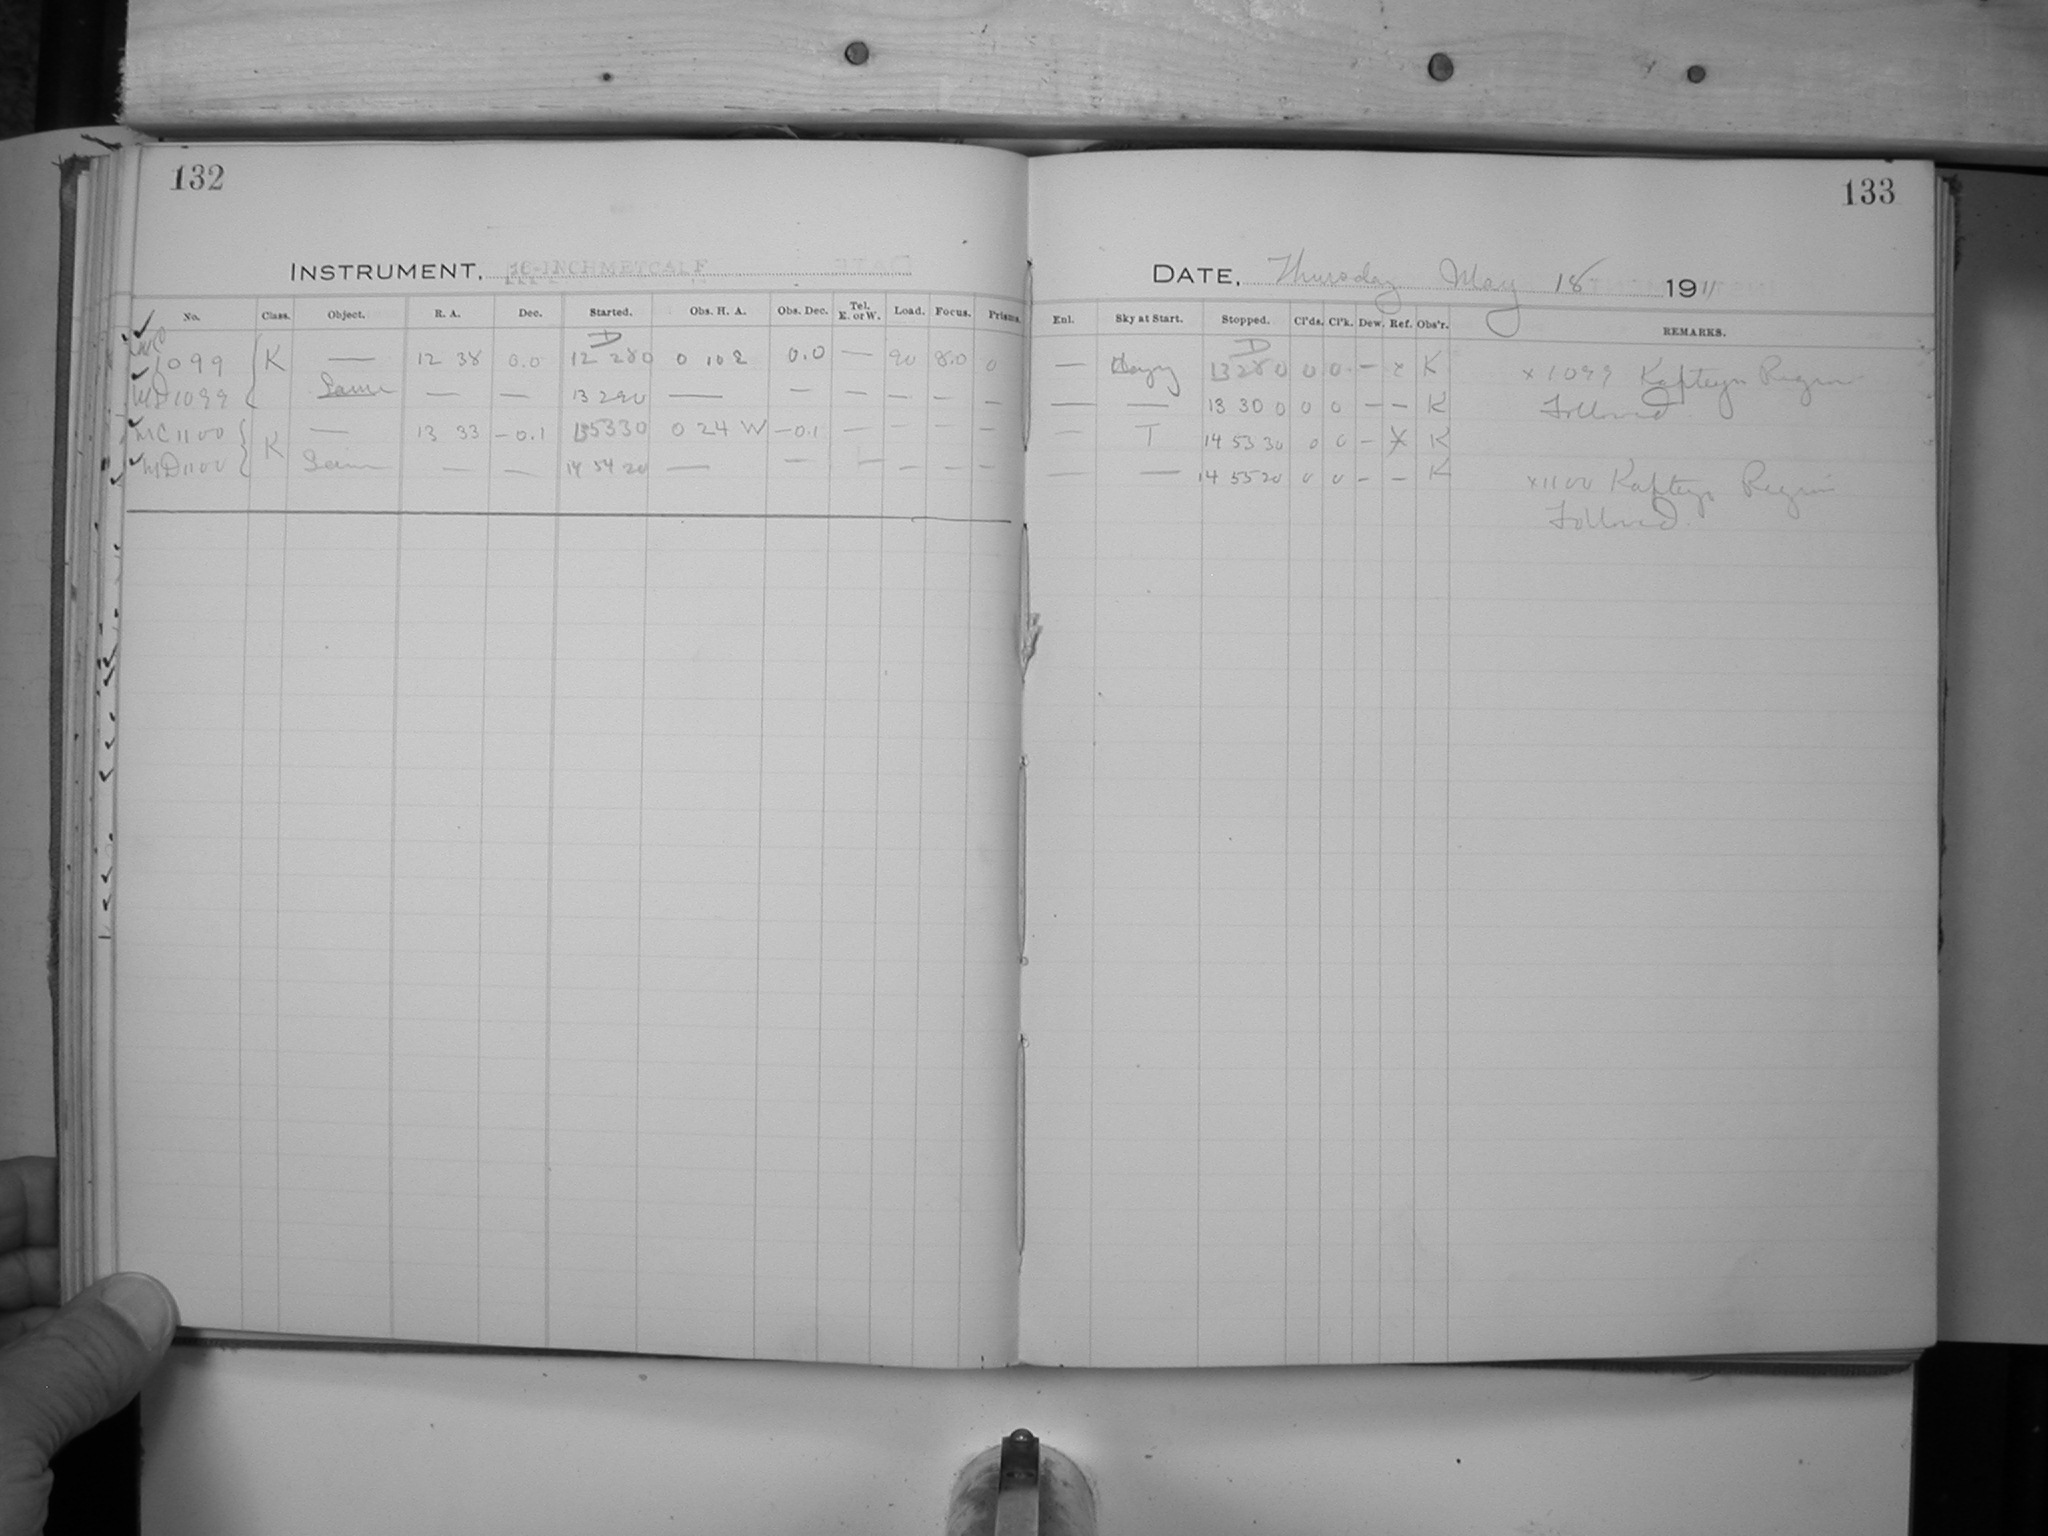 132
133
INSTRUMENT, 16-INCH METCALF
DATE, Thursday May 18 1911
No. Class. Object. R. A. Dec. Started. Obs. H. A. Obs. Dec. Tel. E. or W. Load. Focus. Prisms.
Enl. Sky at Start. Stopped. Cl'ds. Cl'k. Dew. Ref. Obs'r. REMARKS.
D
D
MC 1099 K — 12 38 0.0 12 28 0 0 10 E 0.0 — 90 8.0 0
— Hazy 13 28 0 0 0 - x K x 1099 Kapteyn Region
MD 1099 Same — — 13 29 0 — — — — — —
— — 13 30 0 0 0 — — K Followed
MC 1100 K — 13 33 -0.1 13 53 30 0 24 W -0.1 — — — —
— T 14 53 30 0 0 - x K
MD 1100 Same — — 14 54 20 — — — — — —
— — 14 55 20 0 0 - — K x 1100 Kapteyn Region
Followed